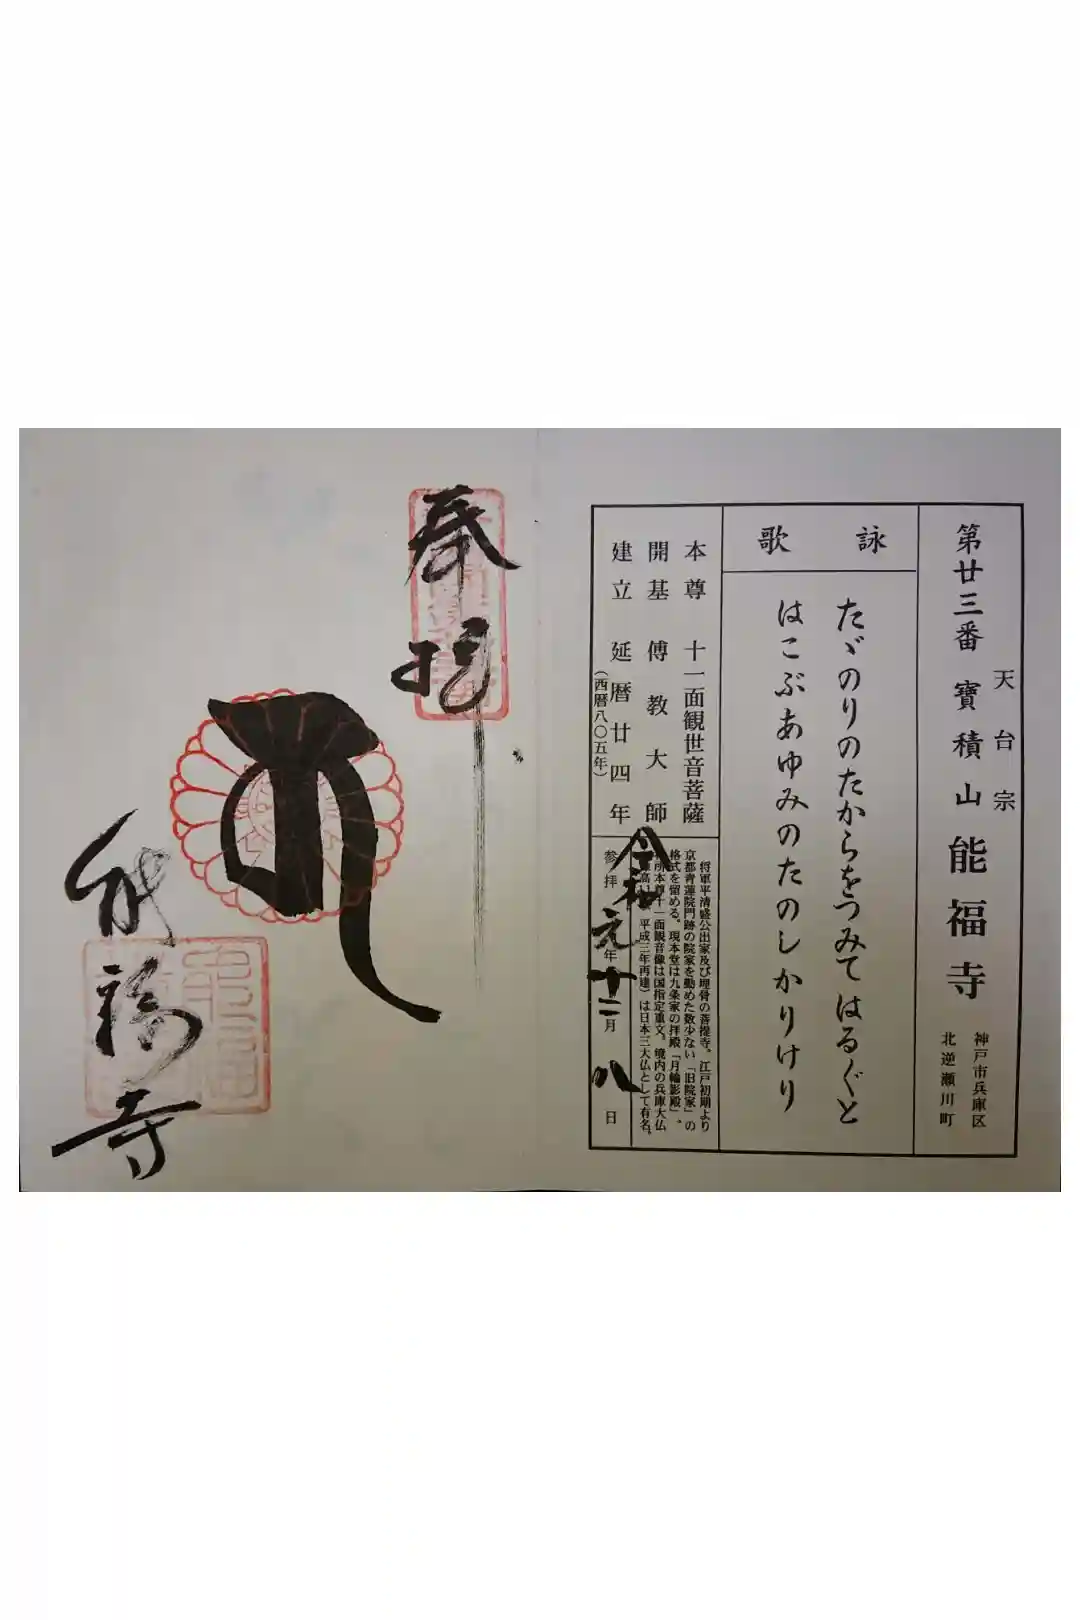 天台宗
第廿三番 寶積山 能福寺
神戸市兵庫区
北逆瀬川町
詠歌
たゞのりのたからをつみてはるぐと
はこぶあゆみのたのしかりけり
本尊 十一面観世音菩薩
開基 傅教大師
建立 延暦廿四年
(西暦八〇五年)
将軍平清盛公出家及び埋骨の菩提寺。江戸初期より
京都青蓮院門跡の院家を勤めた数少ない「旧院家」の
格式を留める。現本堂は九条家の拝殿「月輪影殿」。
所本尊十一面観音像は国指定重文。境内の兵庫大仏
平成三年再建)は日本三大仏として有名。
参拝 令和元年十二月八日
奉拝
能福寺